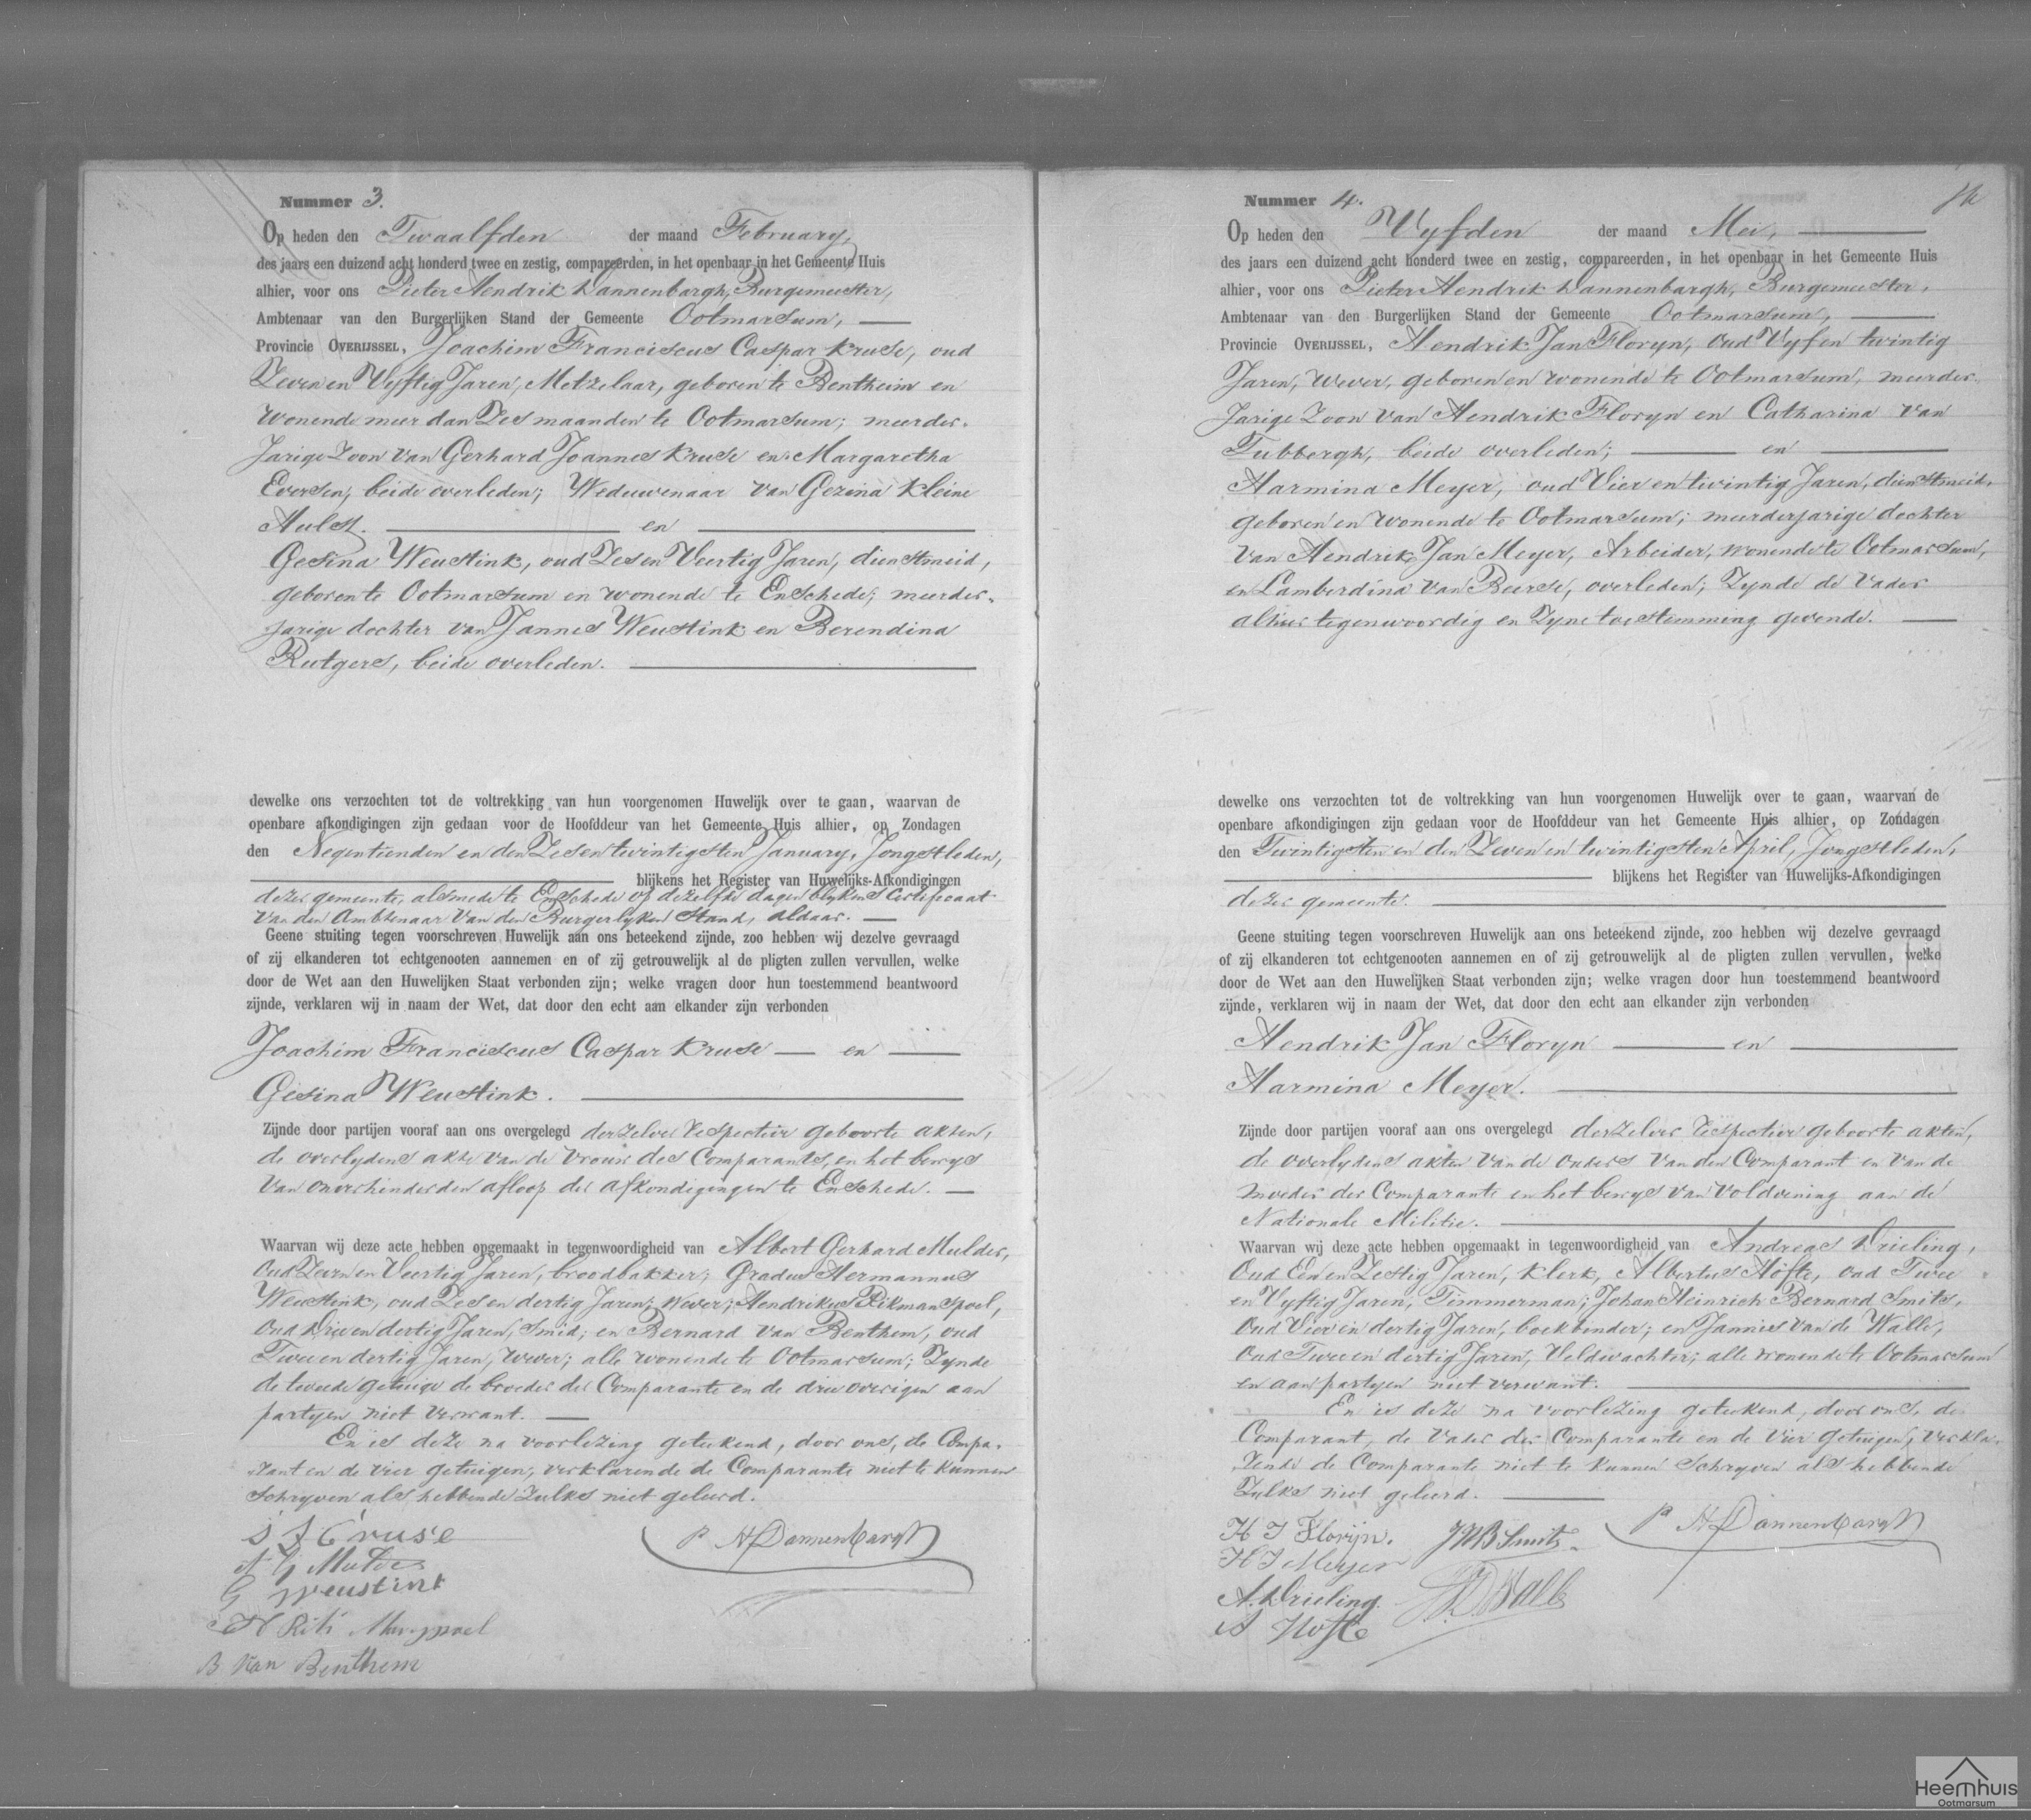 Nummer 3.
Op heden den Twaalfden der maand February,
des jaars een duizend acht honderd twee en zestig, compareerden, in het openbaar in het Gemeente Huis
alhier, voor ons Pieter Hendrik Dannenbargh, Burgemeester,
Ambtenaar van den Burgerlijken Stand der Gemeente Ootmarsum,
Provincie OVERIJSSEL, Joachim Franciscus Caspar Kruse, oud
Zeven en Vyftig Jaren, Metzelaar, geboren te Bentheim en
wonende meer dan Zes maanden te Ootmarsum; meerder-
jarige Zoon van Gerhard Joannes Kruse en Margaretha
Eversen, beide overleden; Weduwenaar van Gezina Kleine
Hulst. en
Gesina Weustink, oud Zes en Veertig Jaren, dienstmeid,
geboren te Ootmarsum en wonende te Enschede; meerder-
jarige dochter van Jannes Weustink en Berendina
Rutgers, beide overleden.
dewelke ons verzochten tot de voltrekking van hun voorgenomen Huwelijk over te gaan, waarvan de
openbare afkondigingen zijn gedaan voor de Hoofddeur van het Gemeente Huis alhier, op Zondagen
den Negentienden en den Zes en twintigsten January, Jongstleden,
blijkens het Register van Huwelijks-Afkondigingen
dezer gemeente, alsmede te Enschede op dezelfde dagen blykens Certificaat
van den Ambtenaar van den Burgerlyken Stand, aldaar.
Geene stuiting tegen voorschreven Huwelijk aan ons beteekend zijnde, zoo hebben wij dezelve gevraagd
of zij elkanderen tot echtgenooten aannemen en of zij getrouwelijk al de pligten zullen vervullen, welke
door de Wet aan den Huwelijken Staat verbonden zijn; welke vragen door hun toestemmend beantwoord
zijnde, verklaren wij in naam der Wet, dat door den echt aan elkander zijn verbonden
Joachim Franciscus Caspar Kruse en
Gesina Weustink.
Zijnde door partijen vooraf aan ons overgelegd derzelver respective geboorte akten,
de overlydens akte van de vrouw des Comparants, en het bewys
van onverhinderden afloop der afkondigingen te Enschede.
Waarvan wij deze acte hebben opgemaakt in tegenwoordigheid van Albert Gerhard Mulder,
oud Zeven en Veertig Jaren, broodbakker; Gradus Hermannus
Weustink, oud Zes en dertig Jaren; wever; Hendrikus Rikmanspoel,
oud Drie en dertig Jaren, Smid; en Bernard van Benthem, oud
Twee en dertig Jaren, Wever; alle wonende te Ootmarsum; Zynde
de tweede getuige de broeder der Comparante en de drie overigen aan
partyen niet verwant.
En is deze na voorlezing geteekend, door ons, de Compa-
rant en de vier getuigen; verklarende de Comparante niet te kunnen
schryven als hebbende zulks niet geleerd.
J F Cruse
A G Mulder
G Weustink
H Rik Manspoel
B van Benthem
P H Dannenbargh
Nummer 4.
Op heden den Vyfden der maand Mei,
des jaars een duizend acht honderd twee en zestig, compareerden, in het openbaar in het Gemeente Huis
alhier, voor ons Pieter Hendrik Dannenbargh, Burgemeester,
Ambtenaar van den Burgerlijken Stand der Gemeente Ootmarsum,
Provincie OVERIJSSEL, Hendrik Jan Floryn, oud Vyf en twintig
Jaren, Wever, geboren en wonende te Ootmarsum, meerder-
jarige Zoon van Hendrik Floryn en Catharina van
Tubbergh, beide overleden; en
Harmina Meyer, oud Vier en twintig Jaren, dienstmeid,
geboren en wonende te Ootmarsum; meerderjarige dochter
van Hendrik Jan Meyer, Arbeider, wonende te Ootmarsum,
en Lamberdina van Beerse, overleden; Zynde de vader
alhier tegenwoordig en Zyne toestemming gevende.
dewelke ons verzochten tot de voltrekking van hun voorgenomen Huwelijk over te gaan, waarvan de
openbare afkondigingen zijn gedaan voor de Hoofddeur van het Gemeente Huis alhier, op Zondagen
den Twintigsten en den Zeven en twintigsten April, Jongstleden,
blijkens het Register van Huwelijks-Afkondigingen
dezer gemeente.
Geene stuiting tegen voorschreven Huwelijk aan ons beteekend zijnde, zoo hebben wij dezelve gevraagd
of zij elkanderen tot echtgenooten aannemen en of zij getrouwelijk al de pligten zullen vervullen, welke
door de Wet aan den Huwelijken Staat verbonden zijn; welke vragen door hun toestemmend beantwoord
zijnde, verklaren wij in naam der Wet, dat door den echt aan elkander zijn verbonden
Hendrik Jan Floryn en
Harmina Meyer.
Zijnde door partijen vooraf aan ons overgelegd derzelver respective geboorte akten,
de overlydens akten van de ouders van den Comparant en van de
moeder der Comparante en het bewys van voldoening aan de
Nationale Militie.
Waarvan wij deze acte hebben opgemaakt in tegenwoordigheid van Andreas Drieling,
oud Een en Zestig Jaren, Klerk, Albertus Höfte, oud Twee
en Vyftig Jaren, Timmerman; Johan Heinrich Bernard Smits,
oud Vier en dertig Jaren, boekbinder; en Jannes van de Walle,
oud Twee en dertig Jaren, Veldwachter; alle wonende te Ootmarsum
en aan partyen niet verwant.
En is deze na voorlezing geteekend, door ons, de
Comparant, de vader der Comparante en de vier getuigen; verkla-
rende de Comparante niet te kunnen schryven als hebbende
zulks niet geleerd.
H J Florijn.
H J Meyer
A. Drieling.
A Hofte
J H B Smits
P H Dannenbargh
Heemhuis
Ootmarsum